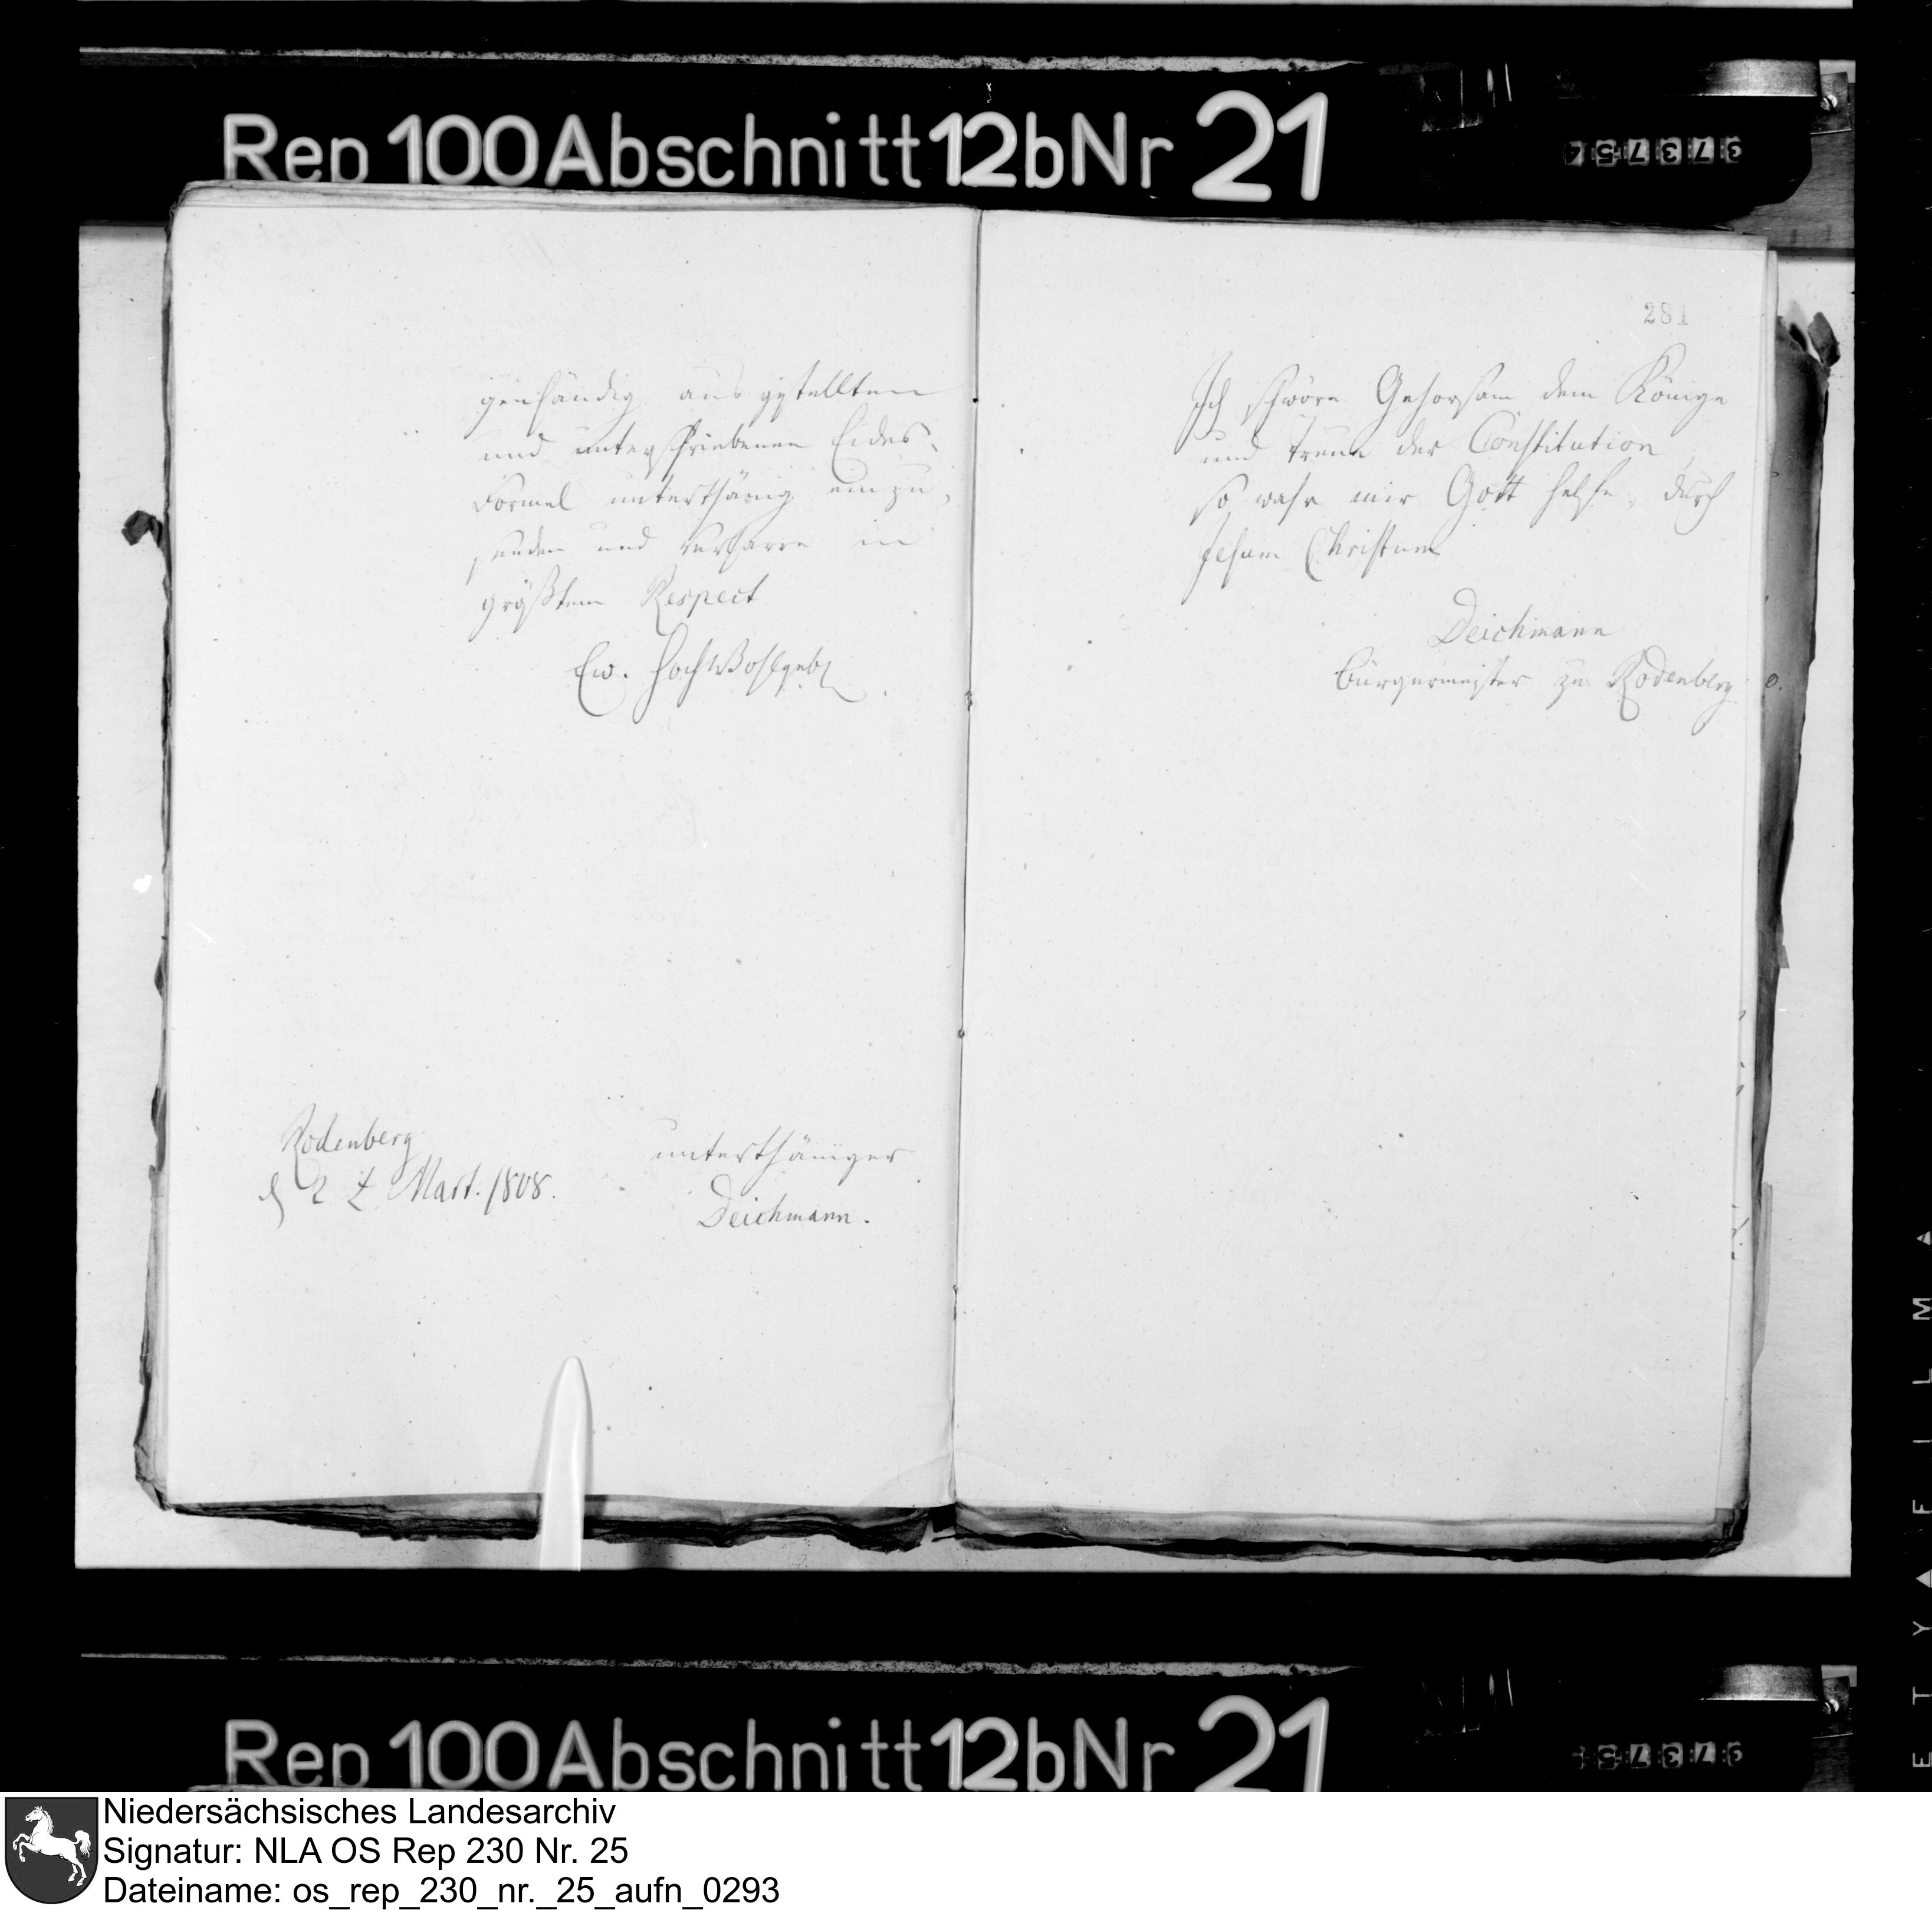 Rep 100 Abschnitt 12b Nr 21
genhändig ausgestellten
und unterschriebenen Eides-
Formel unterthänig einzu-
senden und verharre in
größtem Respect
Ew. HochWohlgeb
Rodenberg
d Mart. 1808.
unterthäniger
Deichmann.
281
Ich schwöre Gehorsam dem Könige
und treue der Constitution
so wahr mir Gott helfe, durch
Jesum Christum
Deichmann
Bürgermeister zu Rodenberg
Rep 100 Abschnitt 12b Nr 21
Niedersächsisches Landesarchiv
Signatur: NLA OS Rep 230 Nr. 25
Dateiname: os_rep_230_nr._25_aufn_0293